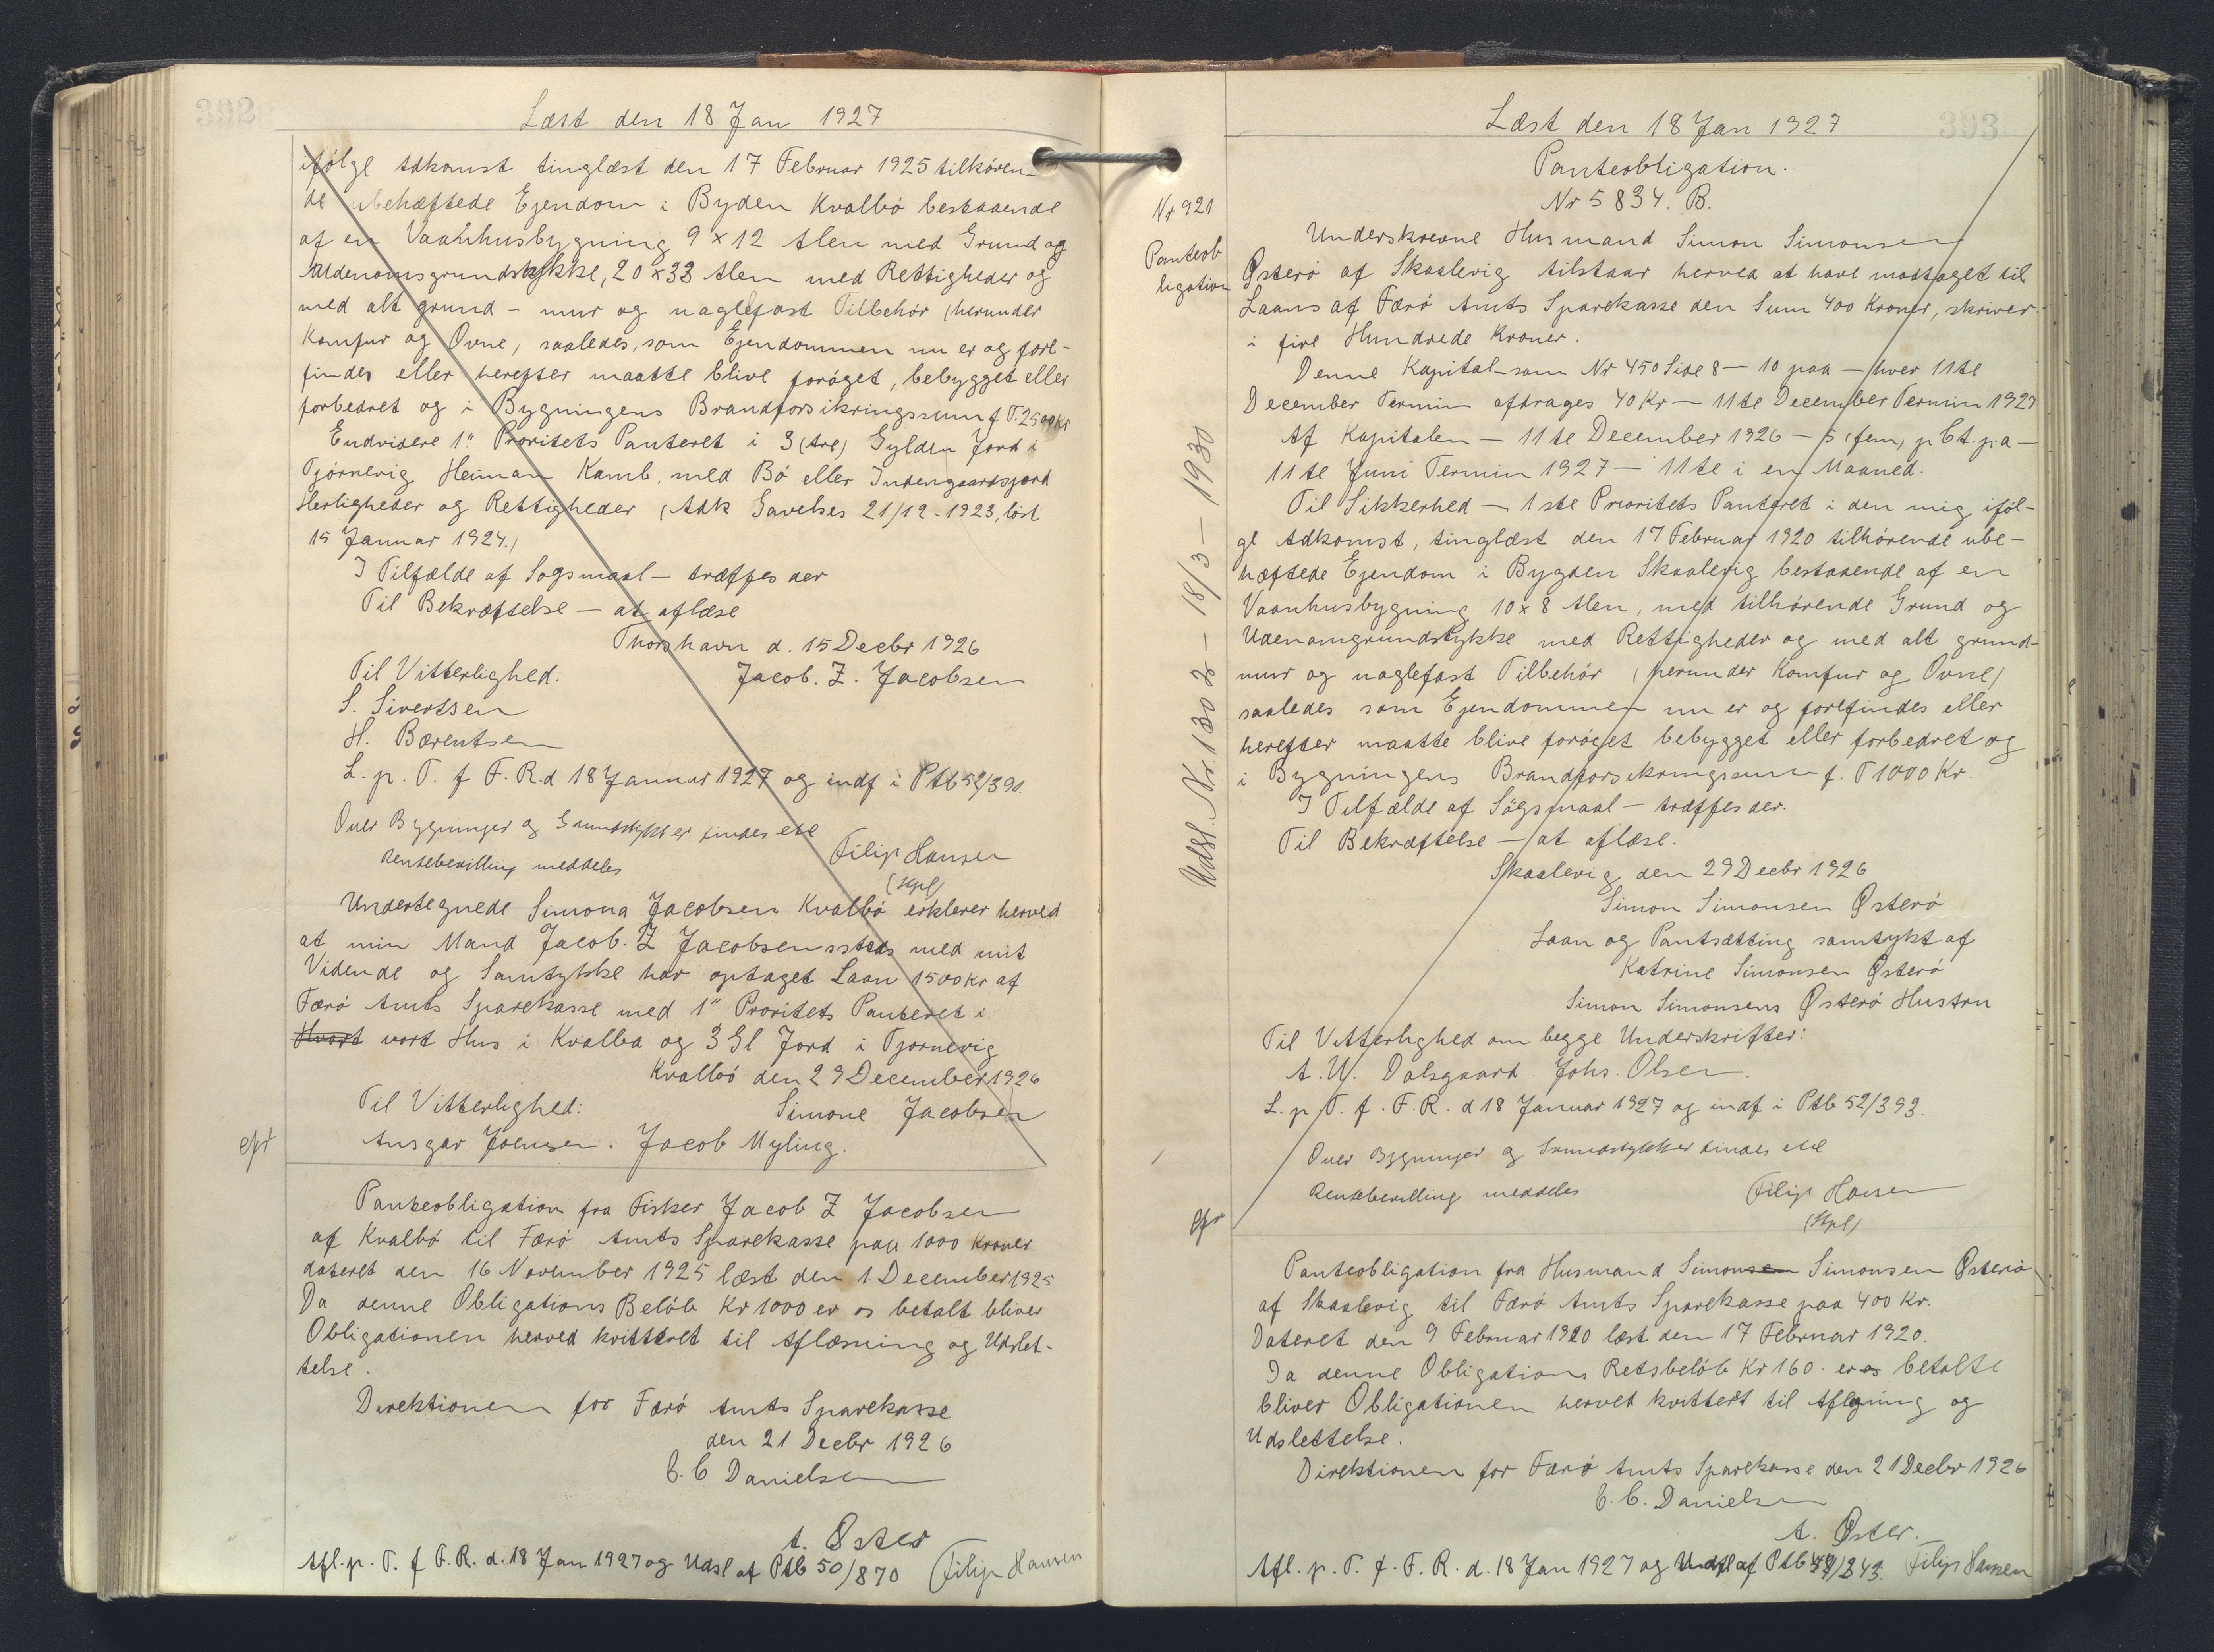 Læst den 18 Jan 1927
ifølge Adkomst tinglæst den 17 Februar 1925 tilhören-
de ubehæftede Ejendom i Byden Kvalbö bestaaende
af en Vaahhusbygning 9 x 12 Alen med Grund og
Udenomsgrundstykke, 20 x 33 Alen med Rettigheder og
med alt grund - mur og naglefast Tilbehör (herunder
Komfur og Ovne, saaledes, som Ejendommen nu er og fore-
findes eller herefter maatte blive foröget, bebygget eller
forbedret og i Bygningens Brandforsikringssum f. T. 2500 Kr
Endvidere 1" Proritets Panteret i 3 (tre) Gylden Jord i
Tjörnevig Heiman Kamb. med Bö eller Indengaardsjord
Herligheder og Rettigheder (Adk Gavebes 21/12 - 1923, löst
15 Januar 1924.)
I Tilfælde af Sogsmaal - træffes der
Til Bekræftelse - at aflæse
Thorshavn d. 15 Decbr 1926
Til Vitterlighed.
Jacob. Z. Jacobsen
S. Sivertsen
H. Bærentsen
L. p. T. f F. R. d 18 Januar 1927 og indf i Ptb 52/391.
Over Bygninger og Grundstykker findes ell
Rentebevilling meddeles
Filip Hansen
(Kpl)
Undertegnede Simona Jacobsen Kvalbö erklerer herved
at min Mand Jacob. Z Jacobsen ssteds med mit
Vidende og Samtykke har optaget Laan 1500 Kr af
Færö Amts Sparekasse med 1" Proritets Panteret i
Hvort vort Hus i Kvalba og 3 Gl Jord i Tjornevig
Kvalbö den 29 December 1926
Til Vitterlighed:
Simone Jacobsen
Ansgar Joensen. Jacob Myling.
cfr
Panteobligation fra Fisker Jacob Z Jacobsen
af Kvalbö til Færö Amts Sparekasse paa 1000 Kroner
dateret den 16 November 1925 læst den 1 December 1925
Da denne Obligations Belöb Kr 1000 er os betalt bliver
Obligationen herved kvitteret til Aflæsning og Udslet-
telse.
Direktionen for Færö Amts Sparekasse
den 21 Decbr 1926
C. C Danielsen
A. Öster
Afl. p. T. f F. R. d. 18 Jan 1927 og Udsl af Ptb 50/870 Filip Hansen
Læst den 18 Jan 1927
393
Panteobligation.
Nr 5834. B.
Nr 921
Panteob
ligation
Underskrevne Husmand Simon Simonsen
Österö af Skaalevig tilstaar herved at have modtaget til
Laans af Færö Amts Sparekasse den Sum 400 Kroner, skriver
i fire Hundrede Kroner.
Denne Kapital - som Nr 450 Side 8 - 10 paa - hver 11te
December Termin afdrages 40 Kr - 11te December Termin 1927
Af Kapitalen - 11te December 1926 - 5 (fem) p Ct. p. a -
11te Juni Termin 1927 - 11te i en Maaned.
Til Sikkerhed - 1ste Prioritets Panteret i den mig iföl-
ge Adkomst, tinglæst den 17 Februar 1920 tilhörende ube-
hæftede Ejendom i Bygden Skaalevig bestaaende af en
Vaanhusbygning 10 x 8 Alen, med tilhörende Grund og
Udenomgrundstykke med Rettigheder og med alt grund-
mur og naglefast Tilbehör (herunder Komfur og Ovne)
saaledes som Ejendommen nu er og forefindes eller
herefter maatte blive foröget bebygget eller forbedret og
i Bygningens Brandforsikringssum f. T 1000 Kr.
I Tilfælde af Sögsmaal - træffes der.
Til Bekræftelse - at aflæse.
Skaalevig den 29 Decbr 1926
Simon Simonsen Österö
Laan og Pantsætting samtykt af
Katrine Simonsen Österö
Simon Simonsens Österö Hustru
Til Vitterlighed om begge Underskrifter:
A. W. Dalsgaard. Johs. Olsen.
L. p. T. f. F. R. d 18 Januar 1927 og indf i Ptb 52/393.
Over Bygninger og Grundstykker findes ell
Rentebevilling meddeles
Filip Hansen
(Kpl)
Udsl. Nr. 1302 - 18/3 - 1930
cfr
Panteobligation fra Husmand Simonsen Simonsen Österö
af Skaalevig til Færö Amts Sparekasse paa 400 Kr.
Dateret den 9 Februar 1920 læst den 17 Februar 1920.
Da denne Obligations Restbelöb Kr 160. er os betalte
bliver Obligationen hervet kvittert til Aflæsning og
Udslettelse.
Direktionen for Færö Amts Sparekasse den 21 Decbr 1926
C. C. Danielsen
A. Öster.
Afl. p. T. f. F. R. d. 18 Jan 1927 og Udsl af Ptb 49/243. Filip Hansen